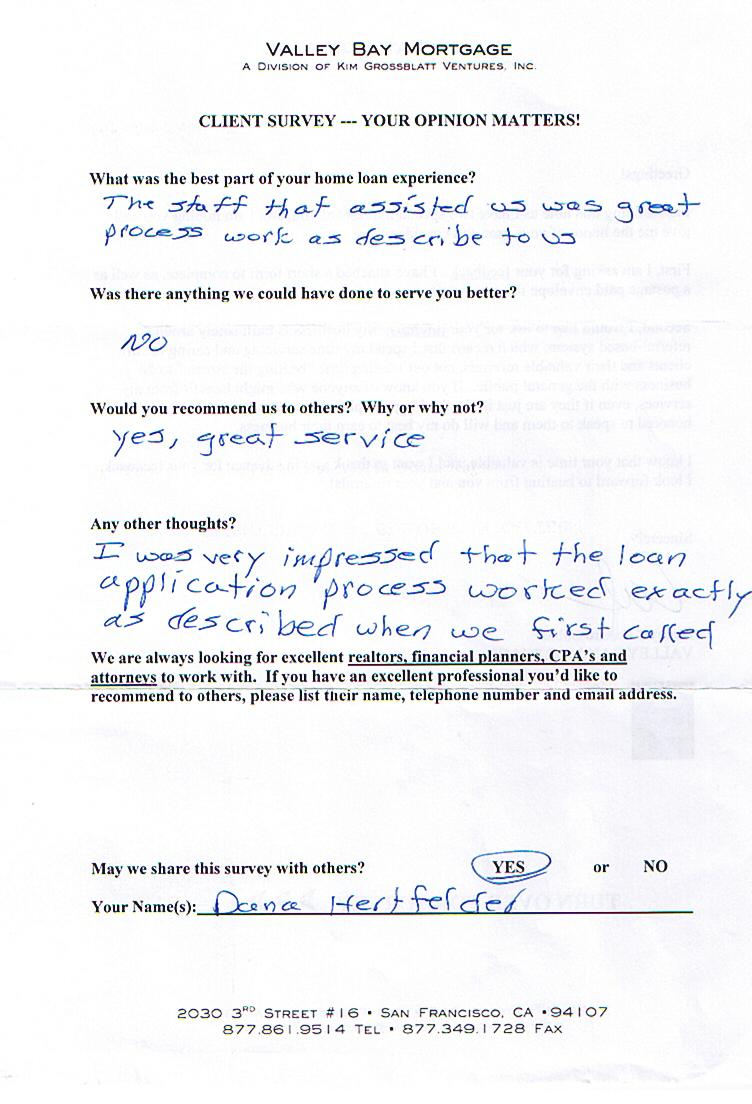 VALLEY BAY MORTGAGE
A DIVISION OF KIM GROSSBLATT VENTURES, INC.
CLIENT SURVEY --- YOUR OPINION MATTERS!
What was the best part of your home loan experience?
The staff that assisted us was great
process work as describe to us
Was there anything we could have done to serve you better?
NO
Would you recommend us to others? Why or why not?
yes, great service
Any other thoughts?
I was very impressed that the loan
application process worked exactly
as described when we first called
We are always looking for excellent realtors, financial planners, CPA's and
attorneys to work with. If you have an excellent professional you'd like to
recommend to others, please list their name, telephone number and email address.
May we share this survey with others? YES or NO
Your Name(s): Dana Hertfelder
2030 3RD STREET #16 • SAN FRANCISCO, CA • 94107
877.861.9514 TEL • 877.349.1728 FAX